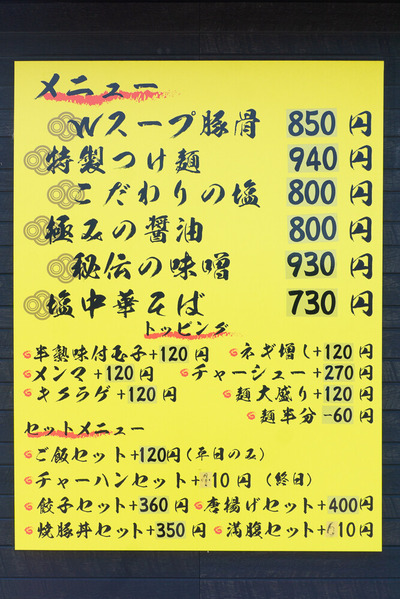 メニュー
Wスープ豚骨 850円
特製つけ麺 940円
こだわりの塩 800円
極みの醤油 800円
秘伝の味噌 930円
塩中華そば 730円
トッピング
半熟味付玉子+120円 ネギ増し+120円
メンマ+120円 チャーシュー+270円
キクラゲ+120円 麺大盛り+120円
麺半分-60円
セットメニュー
ご飯セット+120円(平日のみ)
チャーハンセット+ 10円 (終日)
餃子セット+360円 唐揚げセット+400円
焼豚丼セット+350円 満腹セット+610円